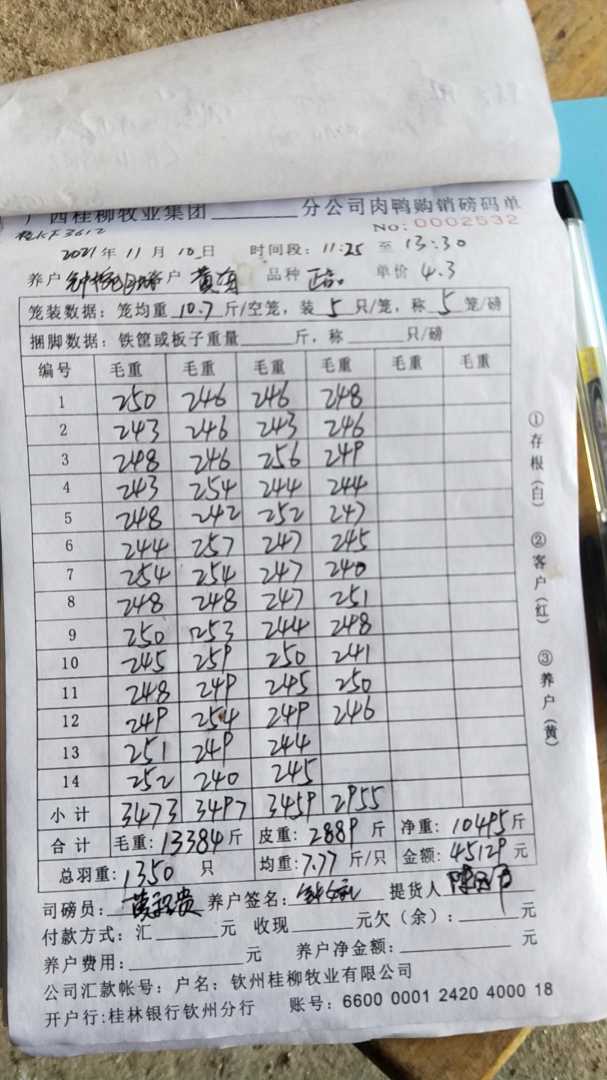 广西桂柳牧业集团 分公司肉鸭购销磅码单
NO:0002532
2021年11月10日 时间段:11:25至13:30
养户 客户 品种 单价 4.3
笼装数据:笼均重10.7斤/空笼,装5只/笼,称5笼/磅
捆脚数据:铁筐或板子重量 斤,称 只/磅
编号 毛重 毛重 毛重 毛重 毛重 毛重
1 250 246 246 248
2 243 246 243 246
3 248 246 256 249
4 243 254 244 244
5 248 242 252 247
6 244 257 247 245
7 254 254 247 240
8 248 248 247 251
9 250 253 244 248
10 245 259 250 241
11 248 249 245 250
12 249 254 249 246
13 251 249 244
14 252 240 245
小计 3473 3497 3459 2955
合计 毛重:13384斤 皮重:2889斤 净重:10495斤
总羽重:1350只 均重:7.77斤/只 金额:45129元
司磅员: 养户签名: 提货人
付款方式:汇 元 收现 元欠(余): 元
养户费用: 元 养户净金额: 元
公司汇款帐号:户名:钦州桂柳牧业有限公司
开户行:桂林银行钦州分行 账号:6600 0001 2420 4000 18
①存根(白) ②客户(红) ③养户(黄)